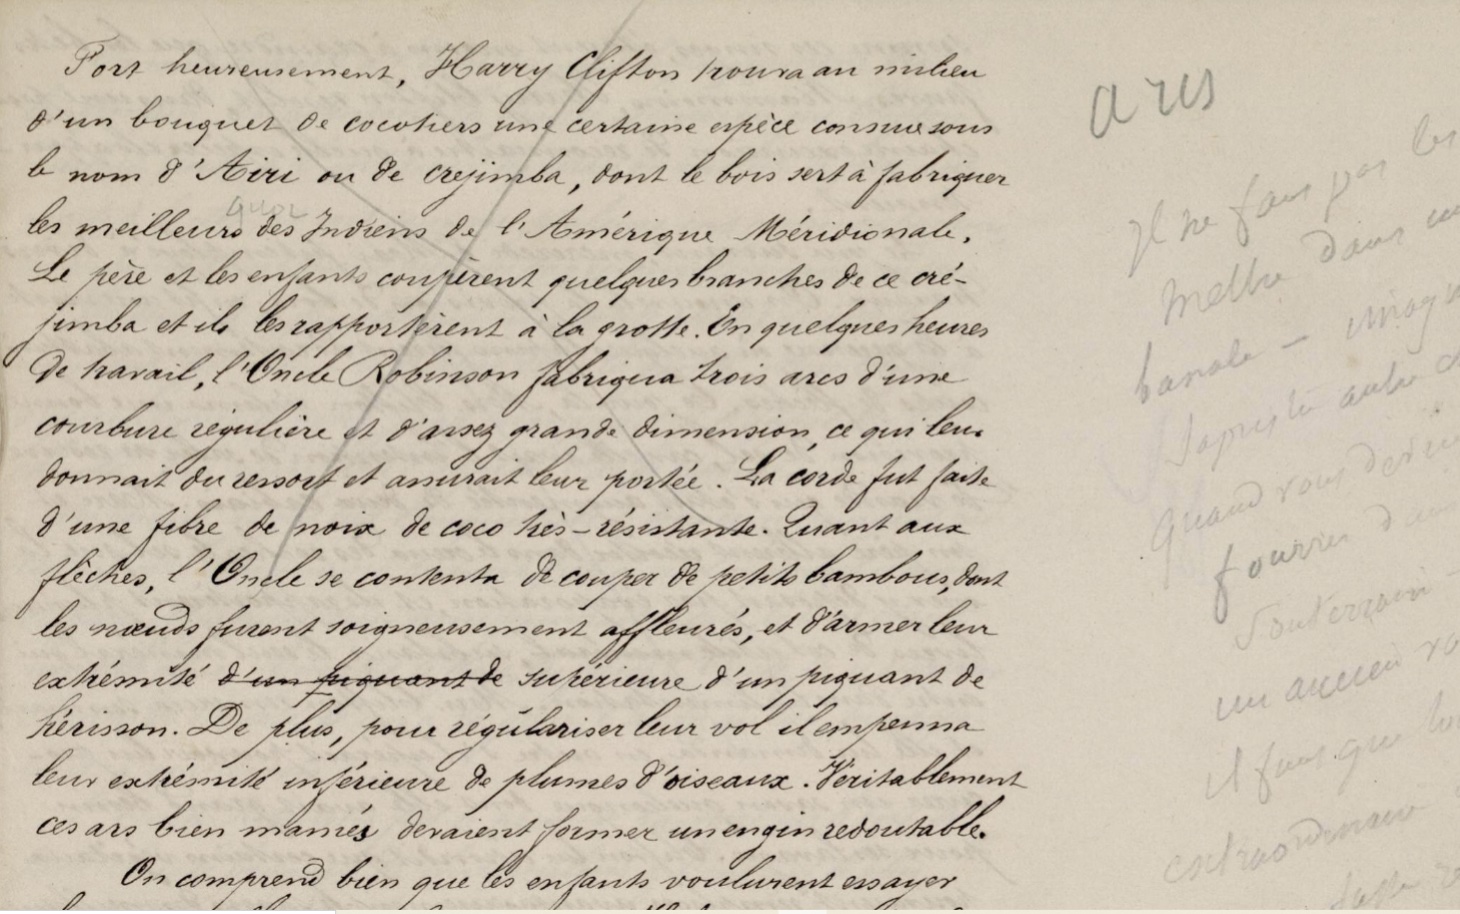 Fort heureusement, Harry Clifton trouva au milieu
d'un bouquet de cocotiers une certaine espèce connue sous
le nom d'Airi ou de crejimba, dont le bois sert à fabriquer
quoi
les meilleurs des Indiens de l'Amérique Méridionale.
Le père et les enfants coupèrent quelques branches de ce cré-
jimba et ils les rapportèrent à la grotte. En quelques heures
de travail, l'Oncle Robinson fabriqua trois arcs d'une
courbure régulière et d'assez grande dimension, ce qui leur
donnait du ressort et assurait leur portée. La corde fut faite
d'une fibre de noix de coco très-résistante. Quant aux
flèches, l'Oncle se contenta de couper de petits bambous, dont
les nœuds furent soigneusement affleurés, et d'armer leur
extrémité d'un piquant de supérieure d'un piquant de
hérisson. De plus, pour régulariser leur vol il empenna
leur extrémité inférieure de plumes d'oiseaux. Véritablement
ces arcs bien maniés devaient former un engin redoutable.
On comprend bien que les enfants voulurent essayer
arcs
Il ne faut pas les
mettre dans
banale —
autre
Quand vous
fourrer
souterrain
un
il faut que
extraordinaire